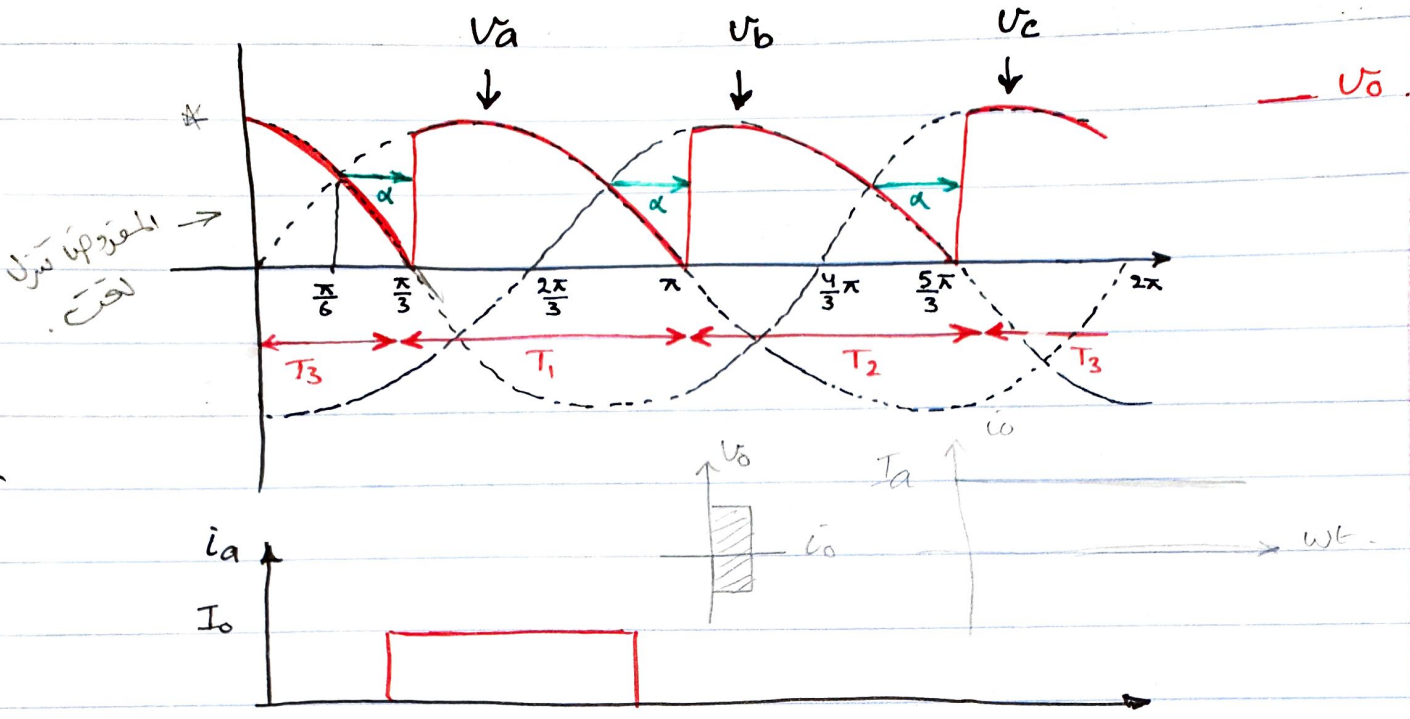 va
vb
vc
vo
*
α
α
α
المفروض تنزل
تحت.
π/6
π/3
2π/3
π
4/3 π
5/3 π
2π
T3
T1
T2
T3
vo
io
Ia
io
wt.
ia
Io